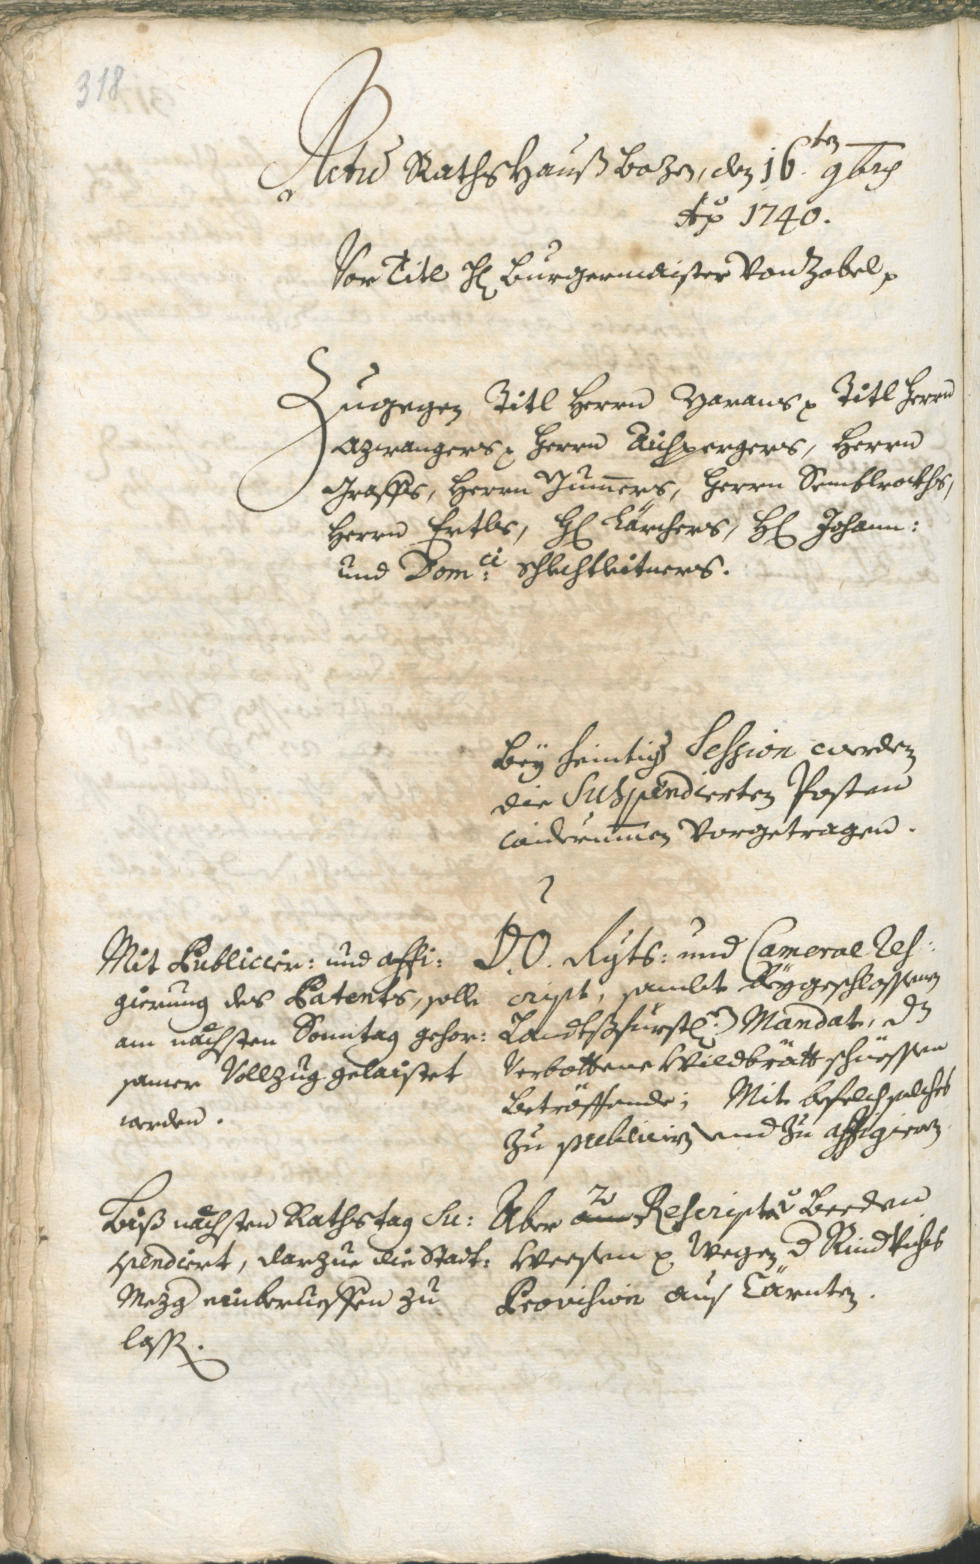 318
Actũ Raths Hauß Bozen, den 16.ten 9bris
Aõ 1740.
Vor Titl H: Burgermaister Von Zobel p
Zugegen Titl Herrn Zarans p Titl Herrn
Azwangers p Herrn Aichpergers, Herrn
Graffs, Herrn Hum̄ers, Herrn Semblroths,
Herrn Ertls, H: Kärchers, H: Johann:
und Domci: Schlechtleitners.
Bey heintiger Session werden
die Suspendierten Posten
widerumben Vorgetragen.
Mit Publicier: und affi:
gierung des Patents, solle
am nächsten Sonntag gehor:
samer Vollzug gelaistet
werden.
O. O. Rgts: und Cameral Res:
cript, sambt beygeschlossenen
Landtsfürstl: Mandat, dz
Verbottene Wildbrätt schiessen
betröffende; Mit befelch solches
zu publiciern und zu affigiern
Biß nächsten Rathstag Su:
spendiert, darzue die Statt:
Mezger einberueffen zu
lassen.
Aber 2 Rescripta beeder
Weesen p Wegen d Rindt Vichs
Provision aus Cärnten.